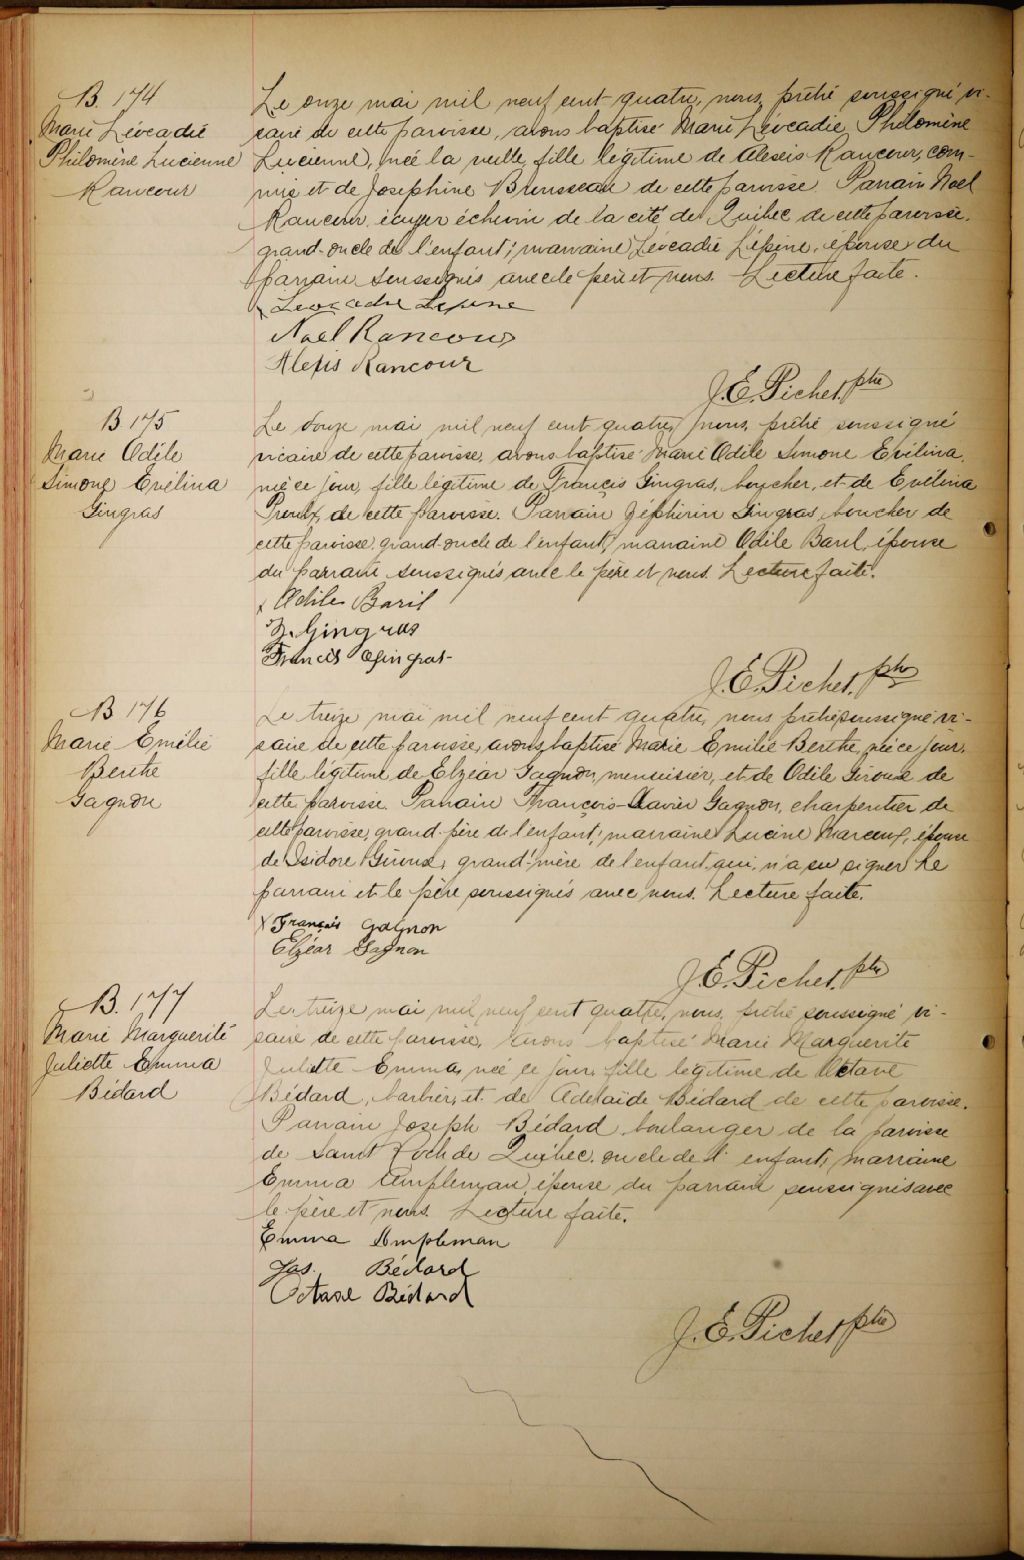 B. 174
Marie Léocadie
Philomène Lucienne
Rancour
Le onze mai mil neuf cent quatre, nous, prêtre soussigné vi-
caire de cette paroisse, avons baptisé Marie Léocadie Philomène
Lucienne, née la veille, fille légitime de Alexis Rancour, com-
mis et de Josephine Brousseau de cette paroisse. Parrain Noël
Rancour, écuyer échevin de la cité de Québec de cette paroisse.
grand-oncle de l'enfant; marraine Léocadie Lépine, épouse du
parrain soussignés avec le père et nous. Lecture faite.
x Léocadie Lepine
Noël Rancour
Alexis Rancour
J. E. Pichet, ptre
B 175
Marie Odile
Simone Evélina
Gingras
Le douze mai mil neuf cent quatre, nous, prêtre soussigné
vicaire de cette paroisse, avons baptisé Marie Odile Simone Evélina,
née ce jour, fille légitime de Francis Gingras, boucher, et de Evélina
Proulx, de cette paroisse. Parrain Zéphirin Gingras, boucher de
cette paroisse, grand-oncle de l'enfant, marraine Odile Baril, épouse
du parrain soussignés avec le père et nous. Lecture faite.
x Odile Baril
Z. Gingras
Francis Gingras
J. E. Pichet, ptre
B 176
Marie Emélie
Berthe
Gagnon
Le treize mai mil neuf cent quatre, nous prêtre soussigné vi-
caire de cette paroisse, avons baptisé Marie Emilie Berthe, née ce jour,
fille légitime de Elzéar Gagnon, menuisier, et de Odile Giroux de
cette paroisse. Parrain François-Xavier Gagnon, charpentier de
cette paroisse, grand-père de l'enfant; marraine Lucine Marcoux, épouse
de Isidore Giroux, grand'mère de l'enfant qui n'a su signer. Le
parrain et le père soussignés avec nous. Lecture faite.
x François Gagnon
Elzéar Gagnon
J. E. Pichet, ptre
B. 177
Marie Marguerite
Juliette Emma
Bédard
Le treize mai mil neuf cent quatre, nous, prêtre soussigné vi-
caire de cette paroisse, avons baptisé Marie Marguerite
Juliette Emma, née ce jour, fille légitime de Octave
Bédard, barbier, et de Adélaïde Bédard de cette paroisse.
Parrain Joseph Bédard, boulanger de la paroisse
de Saint Roch de Québec, oncle de l'enfant; marraine
Emma Ampleman, épouse du parrain soussignés avec
le père et nous. Lecture faite.
Emma Ampleman
Jos. Bédard
Octave Bédard
J. E. Pichet ptre